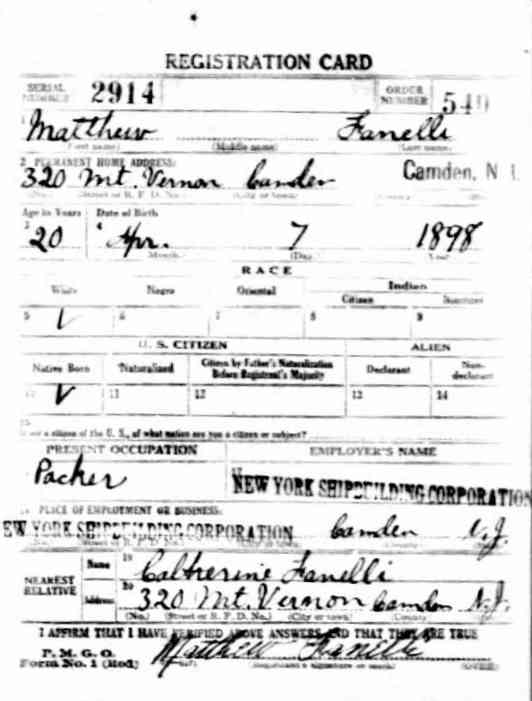 REGISTRATION CARD
SERIAL NUMBER 2914 ORDER NUMBER
1 Matthew Fanelli
(First name) (Middle name) (Last name)
2 PERMANENT HOME ADDRESS:
320 Mt. Vernon Camden Camden, N. J.
(No.) (Street or R. F. D. No.) (City or town) (County) (State)
Age in Years Date of Birth
3 20 4 Apr. 7 1898
(Month) (Day) (Year)
RACE
White Negro Oriental Indian
Citizen Noncitizen
5 6 7 8 9
U. S. CITIZEN ALIEN
Native Born Naturalized Citizen by Father's Naturalization Before Registrant's Majority Declarant Non-declarant
10 11 12 13 14
15
If not a citizen of the U. S., of what nation are you a citizen or subject?
PRESENT OCCUPATION EMPLOYER'S NAME
Packer NEW YORK SHIPBUILDING CORPORATION
PLACE OF EMPLOYMENT OR BUSINESS:
NEW YORK SHIPBUILDING CORPORATION Camden N.J.
(No.) (Street or R. F. D. No.) (City or town) (County) (State)
NEAREST RELATIVE
Name 19 Catherine Fanelli
Address 20 320 Mt. Vernon Camden N.J.
(No.) (Street or R. F. D. No.) (City or town) (County) (State)
I AFFIRM THAT I HAVE VERIFIED ABOVE ANSWERS AND THAT THEY ARE TRUE
P. M. G. O.
Form No. 1 (Red) Matthew Fanelli
(Registrant's signature or mark) (OVER)